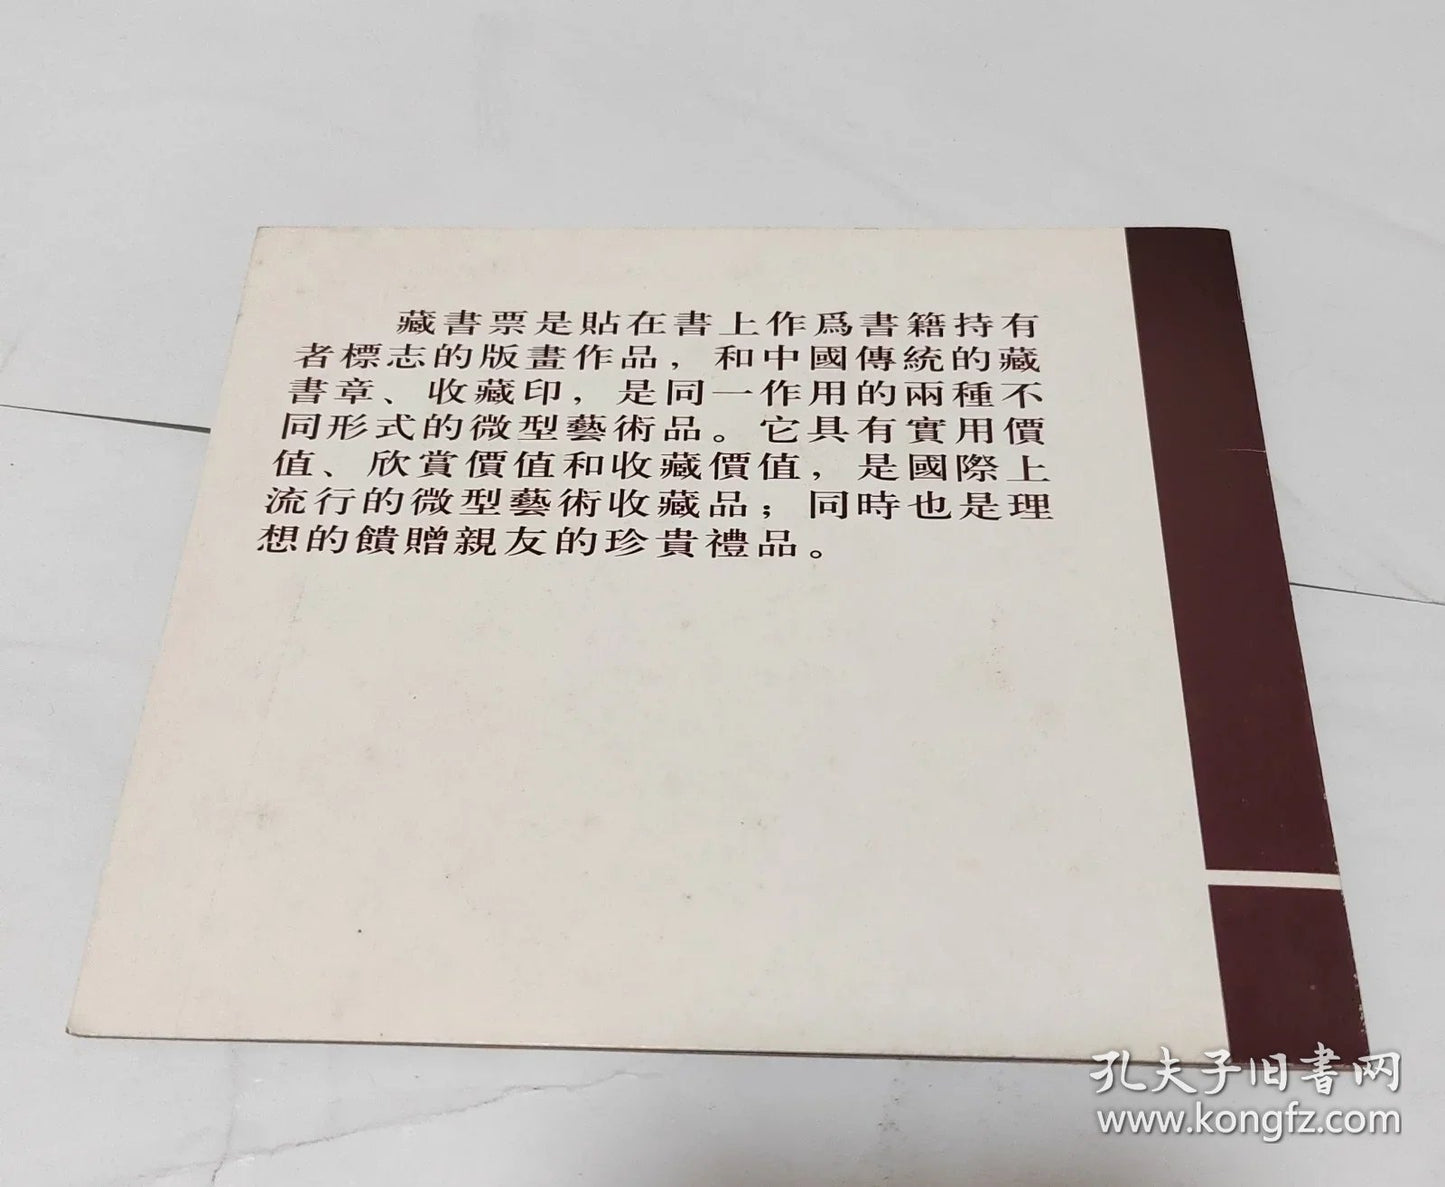 藏書票是貼在書上作爲書籍持有
者標志的版畫作品，和中國傳統的藏
書章、收藏印，是同一作用的兩種不
同形式的微型藝術品。它具有實用價
值、欣賞價值和收藏價值，是國際上
流行的微型藝術收藏品；同時也是理
想的饋贈親友的珍貴禮品。
孔夫子旧書网
www.kongfz.com